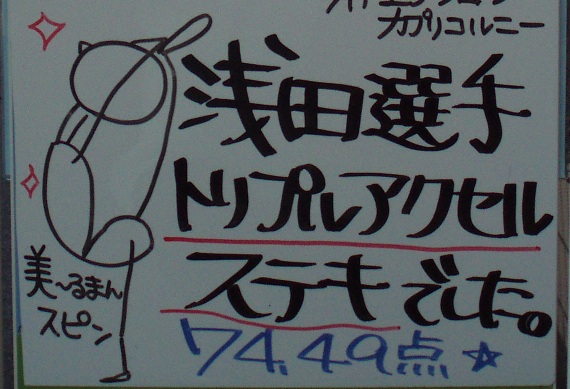 カプリコルニー
浅田選手
トリプルアクセル
ステキでした。
74.49点☆
美〜るまん
スピン